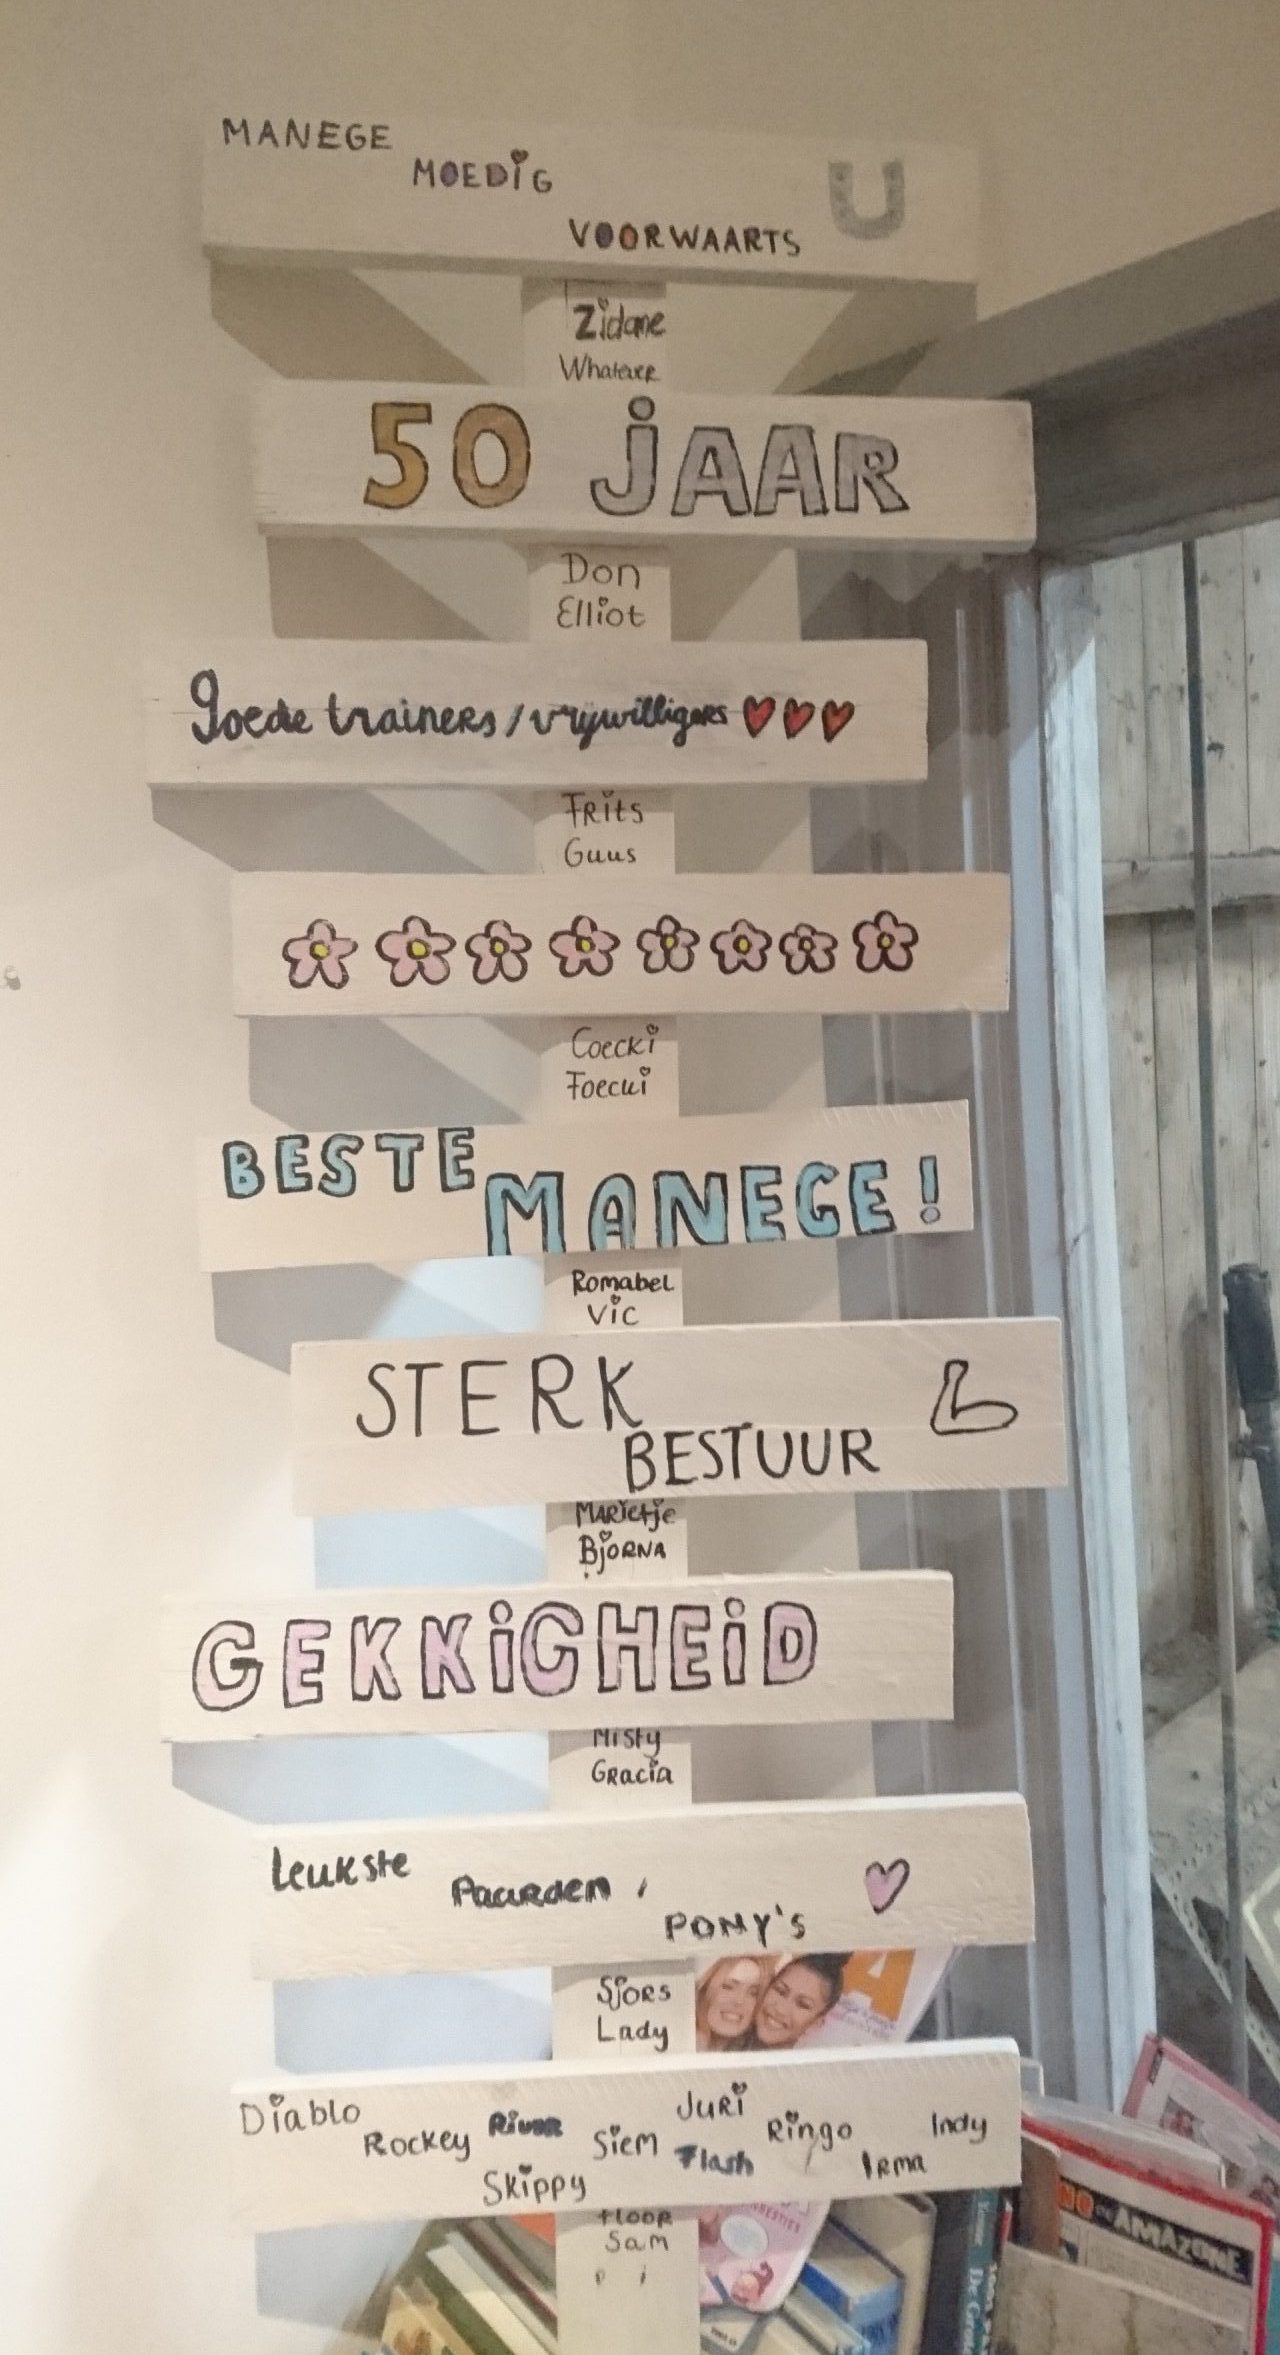 MANEGE
MOEDIG
VOORWAARTS
Zidane
Whatever
50 JAAR
Don
Elliot
goede trainers / vrijwilligers
Frits
Guus
Coecki
Foecui
BESTE
MANEGE!
Romabel
Vic
STERK
BESTUUR
Marietje
Bjorna
GEKKIGHEID
Misty
Gracia
Leukste
Paarden,
PONY's
Sjors
Lady
Diablo
Rockey
River
Skippy
Siem
Juri
Flash
Ringo
Irma
Indy
Floor
Sam
AMAZONE